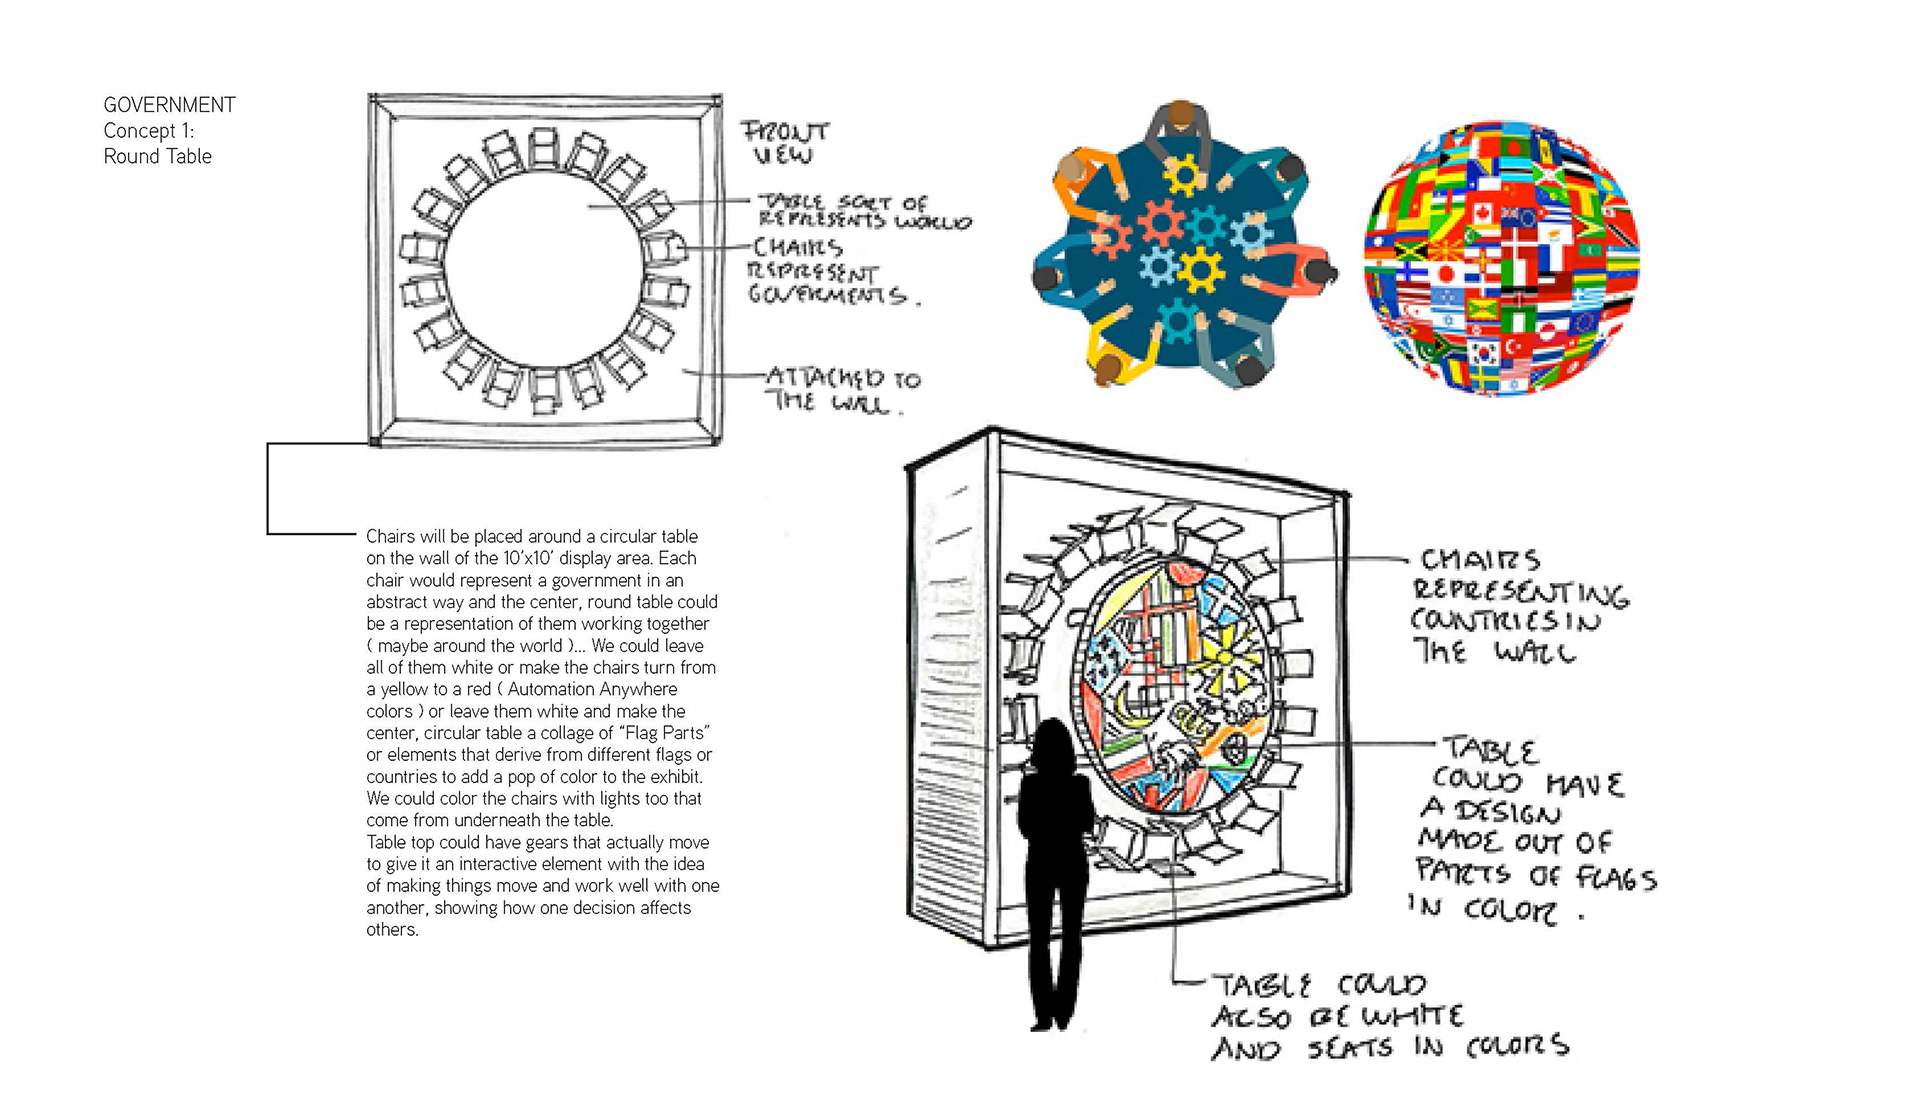 GOVERNMENT
Concept 1:
Round Table
FRONT
VIEW
TABLE SORT OF
REPRESENTS WORLD
CHAIRS
REPRESENT
GOVERMENTS.
ATTACHED TO
THE WALL.
Chairs will be placed around a circular table
on the wall of the 10'x10' display area. Each
chair would represent a government in an
abstract way and the center, round table could
be a representation of them working together
( maybe around the world )... We could leave
all of them white or make the chairs turn from
a yellow to a red ( Automation Anywhere
colors ) or leave them white and make the
center, circular table a collage of “Flag Parts”
or elements that derive from different flags or
countries to add a pop of color to the exhibit.
We could color the chairs with lights too that
come from underneath the table.
Table top could have gears that actually move
to give it an interactive element with the idea
of making things move and work well with one
another, showing how one decision affects
others.
CHAIRS
REPRESENTING
COUNTRIES IN
THE WALL
TABLE
COULD HAVE
A DESIGN
MADE OUT OF
PARTS OF FLAGS
IN COLOR.
TABLE COULD
ALSO BE WHITE
AND SEATS IN COLORS